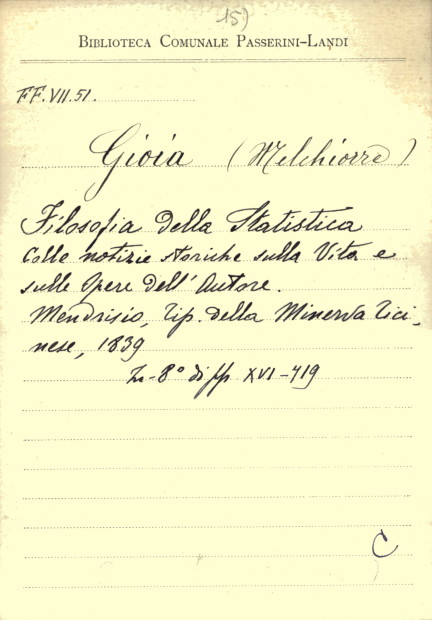 15)
BIBLIOTECA COMUNALE PASSERINI-LANDI
FF.VII.51.
Gioia (Melchiorre)
Filosofia della Statistica
colle notizie storiche sulla Vita e
sulle Opere dell'Autore.
Mendrisio, Tip. della Minerva Tici-
nese, 1839
In-8° di pp XVI-719
C